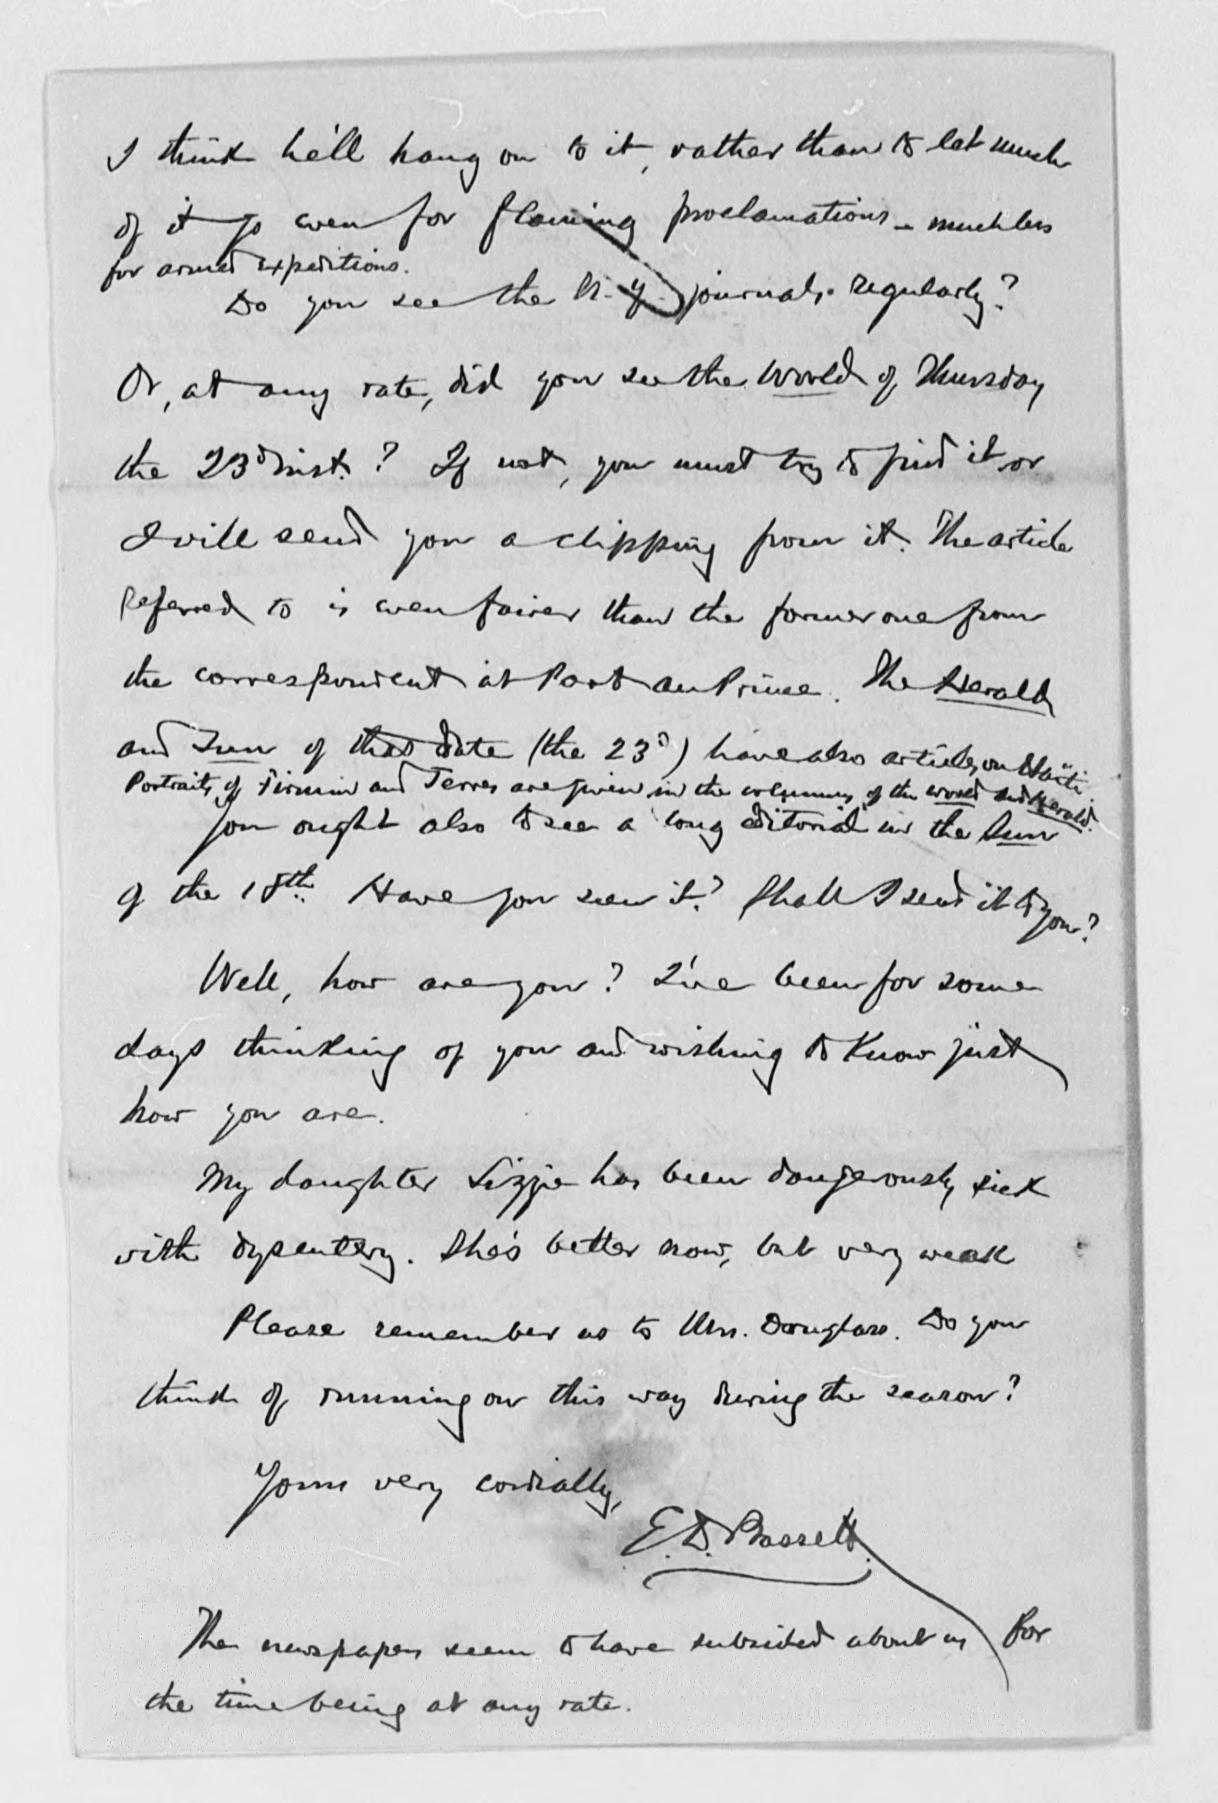 I think he'll hang on to it, rather than to let much
of it go even for flaming proclamations – much less
for armed expeditions.
Do you see the N.Y. journals regularly?
Or, at any rate, did you see the World of Thursday
the 23d inst.? If not, you must try to find it or
I will send you a clipping from it. The article
referred to is even fairer than the former one from
the correspondent at Port au Prince. The Herald
and Sun of that date (the 23d) have also articles on Haïti
Portraits of Firmin and Terres are given in the columns of the World and Herald.
You ought also to see a long editorial in the Sun
of the 18th. Have you seen it? Shall I send it to you?
Well, how are you? I've been for some
days thinking of you and wishing to know just
how you are.
My daughter Lizzie has been dangerously sick
with dysentery. She's better now, but very weak
Please remember us to Mrs. Douglass. Do you
think of running on this way during the season?
Yours very cordially,
E.D. Bassett.
The newspapers seem to have subsided about us for
the time being at any rate.